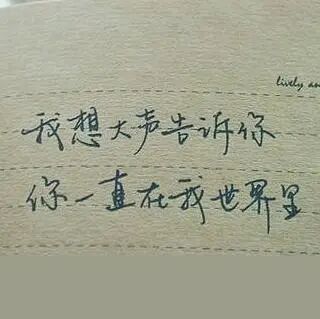 lively an
我想大声告诉你
你一直在我世界里